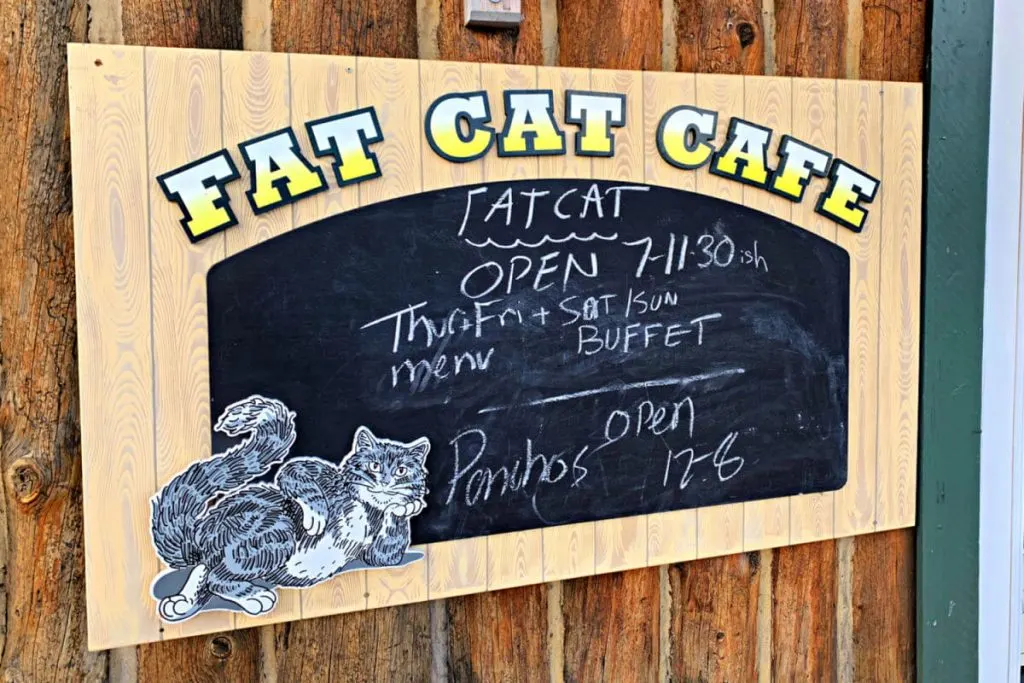 FAT CAT CAFE
FAT CAT
OPEN 7-11:30ish
Thur+Fri + SAT/SUN
menu BUFFET
Ponchos open
12-8